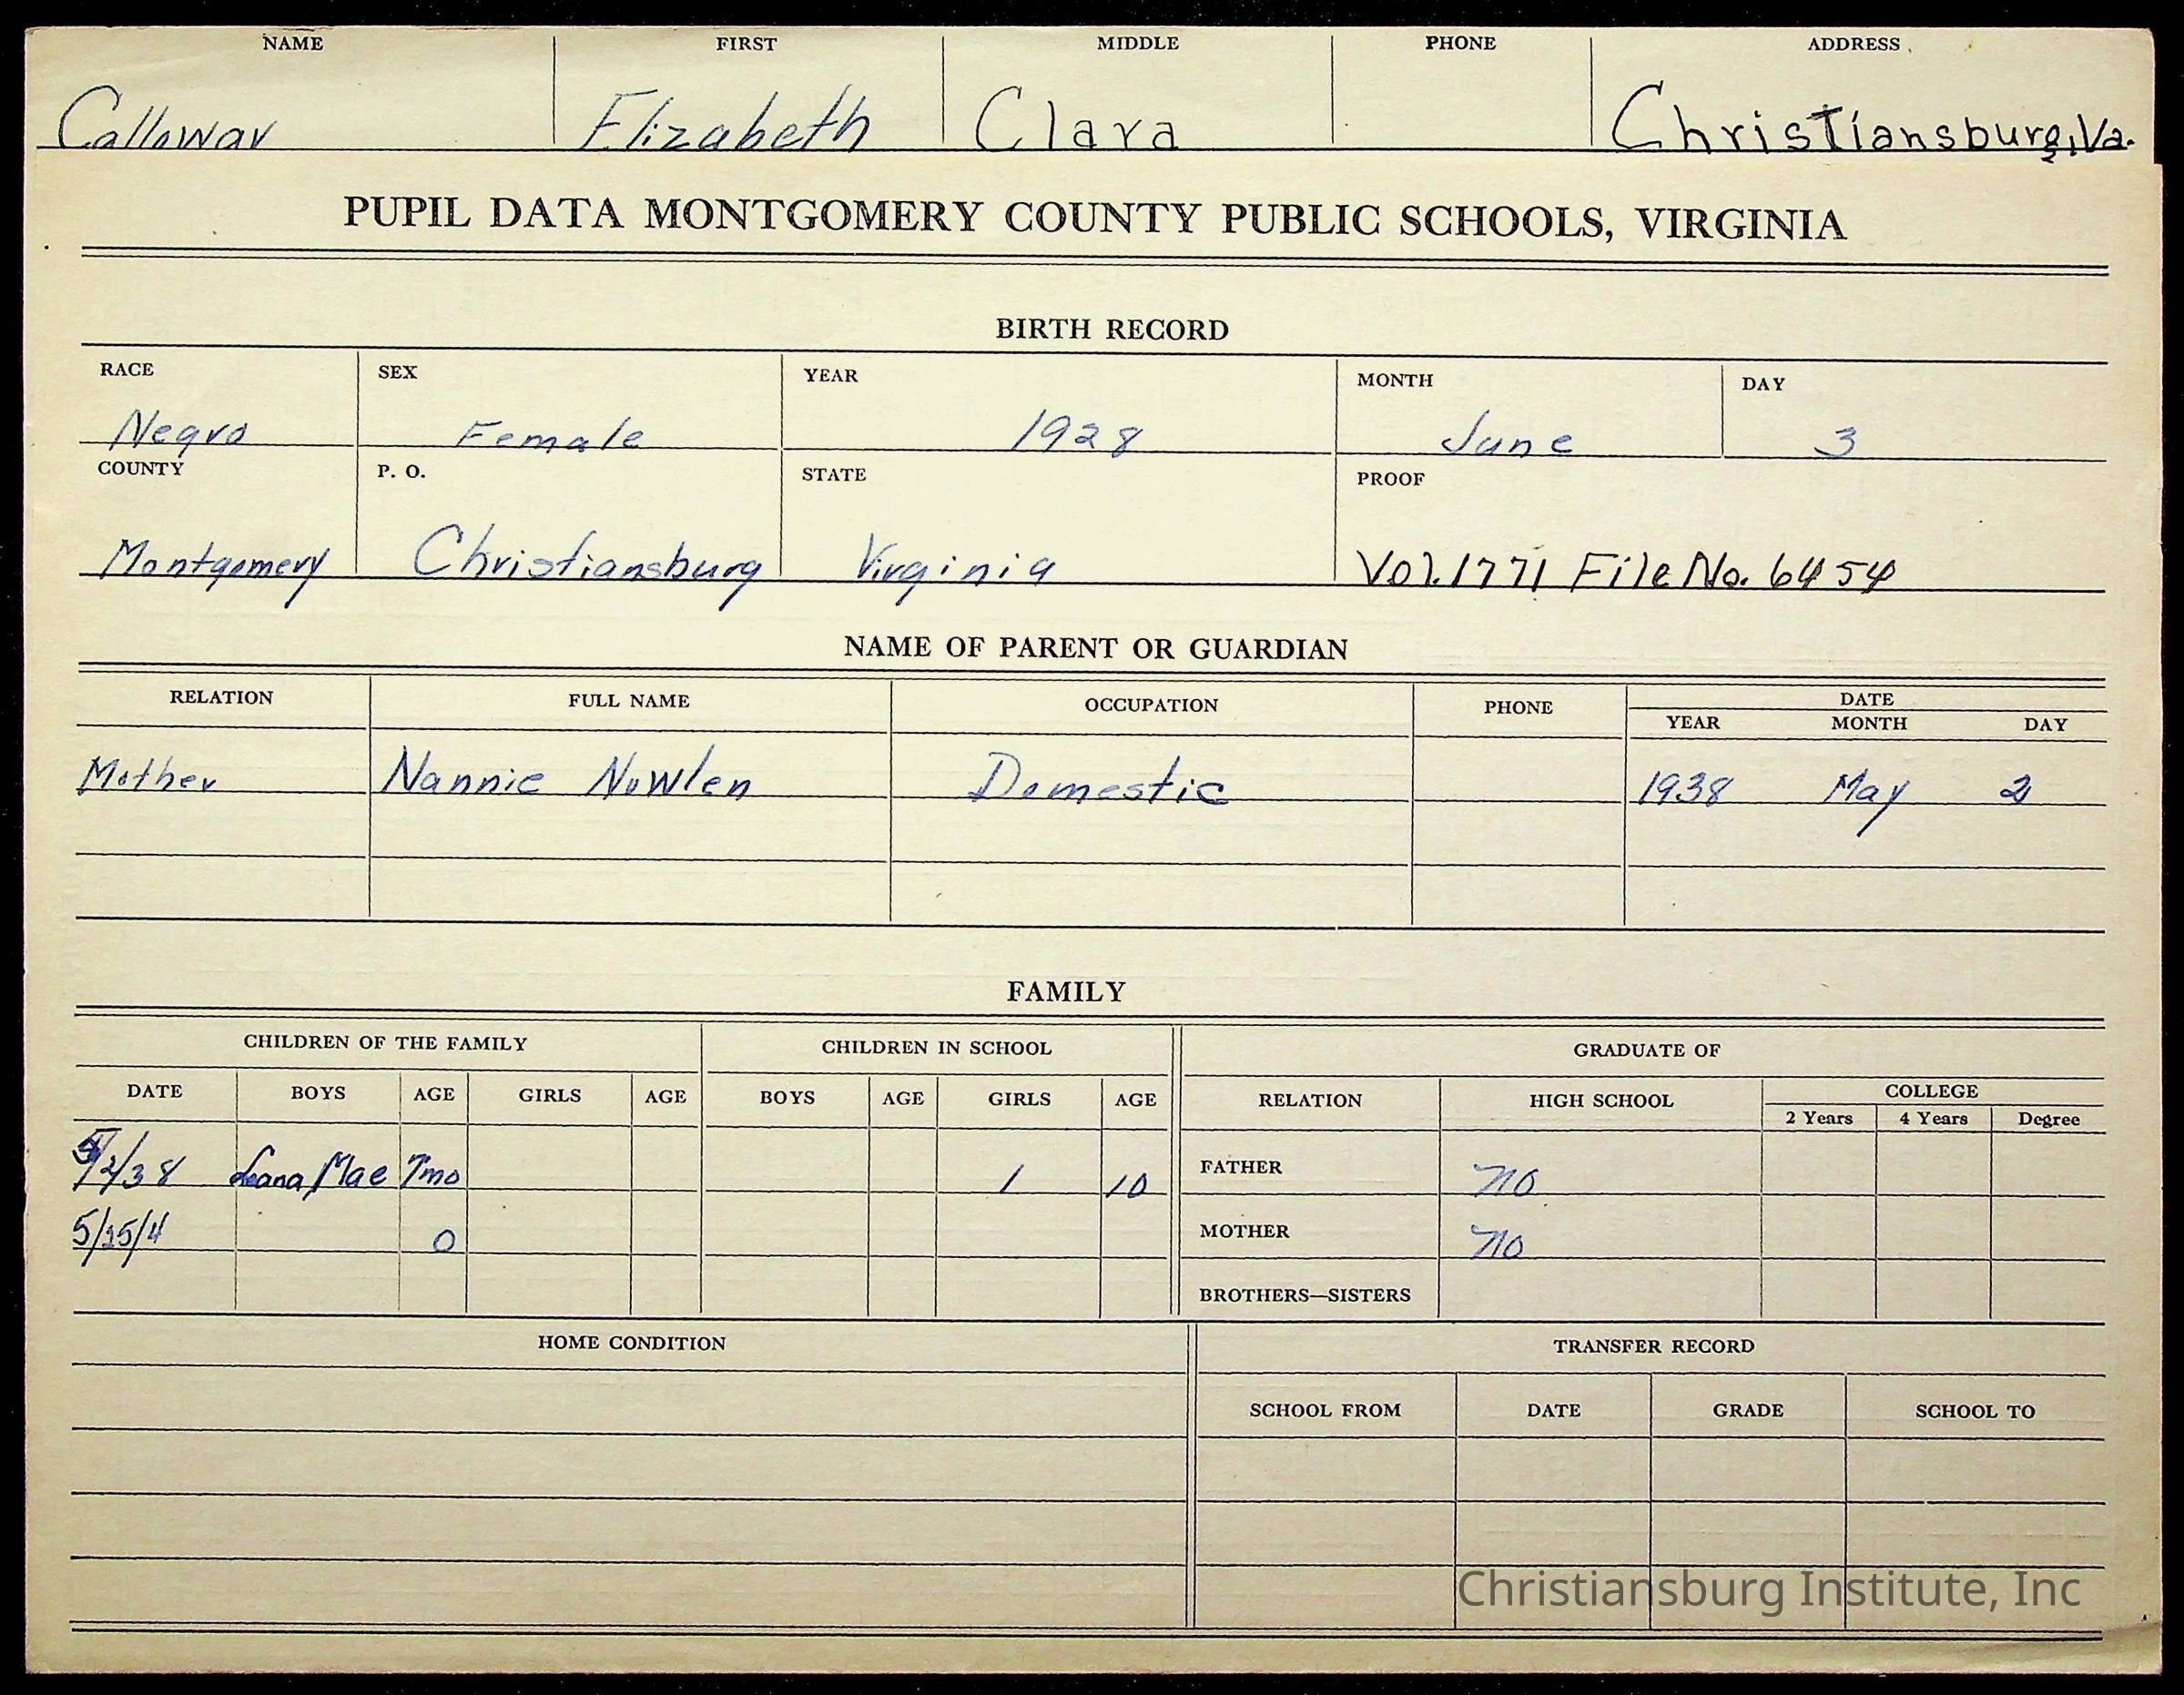 NAME FIRST MIDDLE PHONE ADDRESS
Calloway Elizabeth Clara Christiansburg, Va.
PUPIL DATA MONTGOMERY COUNTY PUBLIC SCHOOLS, VIRGINIA
BIRTH RECORD
RACE SEX YEAR MONTH DAY
Negro Female 1928 June 3
COUNTY P. O. STATE PROOF
Montgomery Christiansburg Virginia Vol. 1771 File No. 6454
NAME OF PARENT OR GUARDIAN
RELATION FULL NAME OCCUPATION PHONE DATE
YEAR MONTH DAY
Mother Nannie Nowlen Domestic 1938 May 2
FAMILY
CHILDREN OF THE FAMILY CHILDREN IN SCHOOL GRADUATE OF
DATE BOYS AGE GIRLS AGE BOYS AGE GIRLS AGE RELATION HIGH SCHOOL COLLEGE
2 Years 4 Years Degree
5/2/38 Mae 7mo 1 10 FATHER no
5/15/4 0 MOTHER no
BROTHERS—SISTERS
HOME CONDITION TRANSFER RECORD
SCHOOL FROM DATE GRADE SCHOOL TO
Christiansburg Institute, Inc